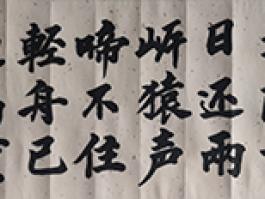 日还兩
岍猿声
啼不住
輕舟已